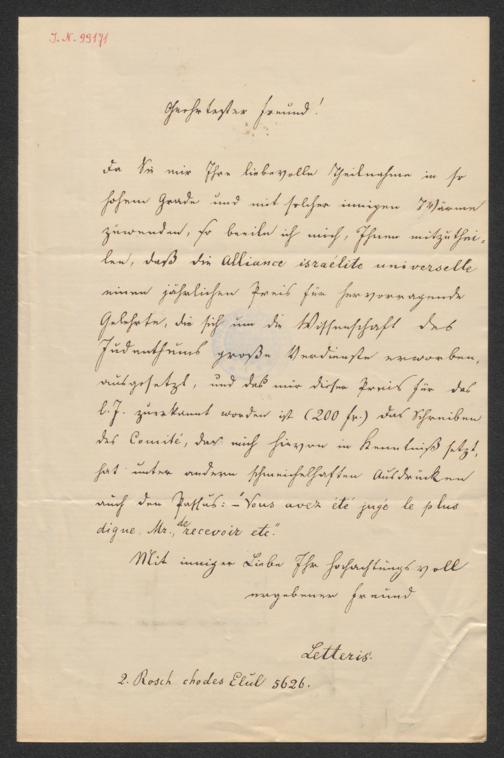 I.N. 99171
Geehrtester Freund!
Da Sie mir Ihre liebevolle Theilnahme in so
hohem Grade und mit solcher innigen Wärme
zuwenden, so beeile ich mich, Ihnen mitzuthei-
len, daß die Alliance israélite universelle
einen jährlichen Preis für hervorragende
Gelehrte, die sich um die Wissenschaft des
Judenthums große Verdienste erworben,
ausgesetzt, und daß mir dieser Preis für das
l. J. zuerkannt worden ist (200 fr.) Das Schreiben
des Comité, das mich hievon in Kenntniß setzt,
hat unter andern schmeichelhaften Ausdrücken
auch den Passus: "Vous avez été jugé le plus
digne, Mr., de recevoir etc."
Mit inniger Liebe Ihr hochachtungsvoll
ergebener Freund
Letteris.
2. Rosch chodes Elul 5626.